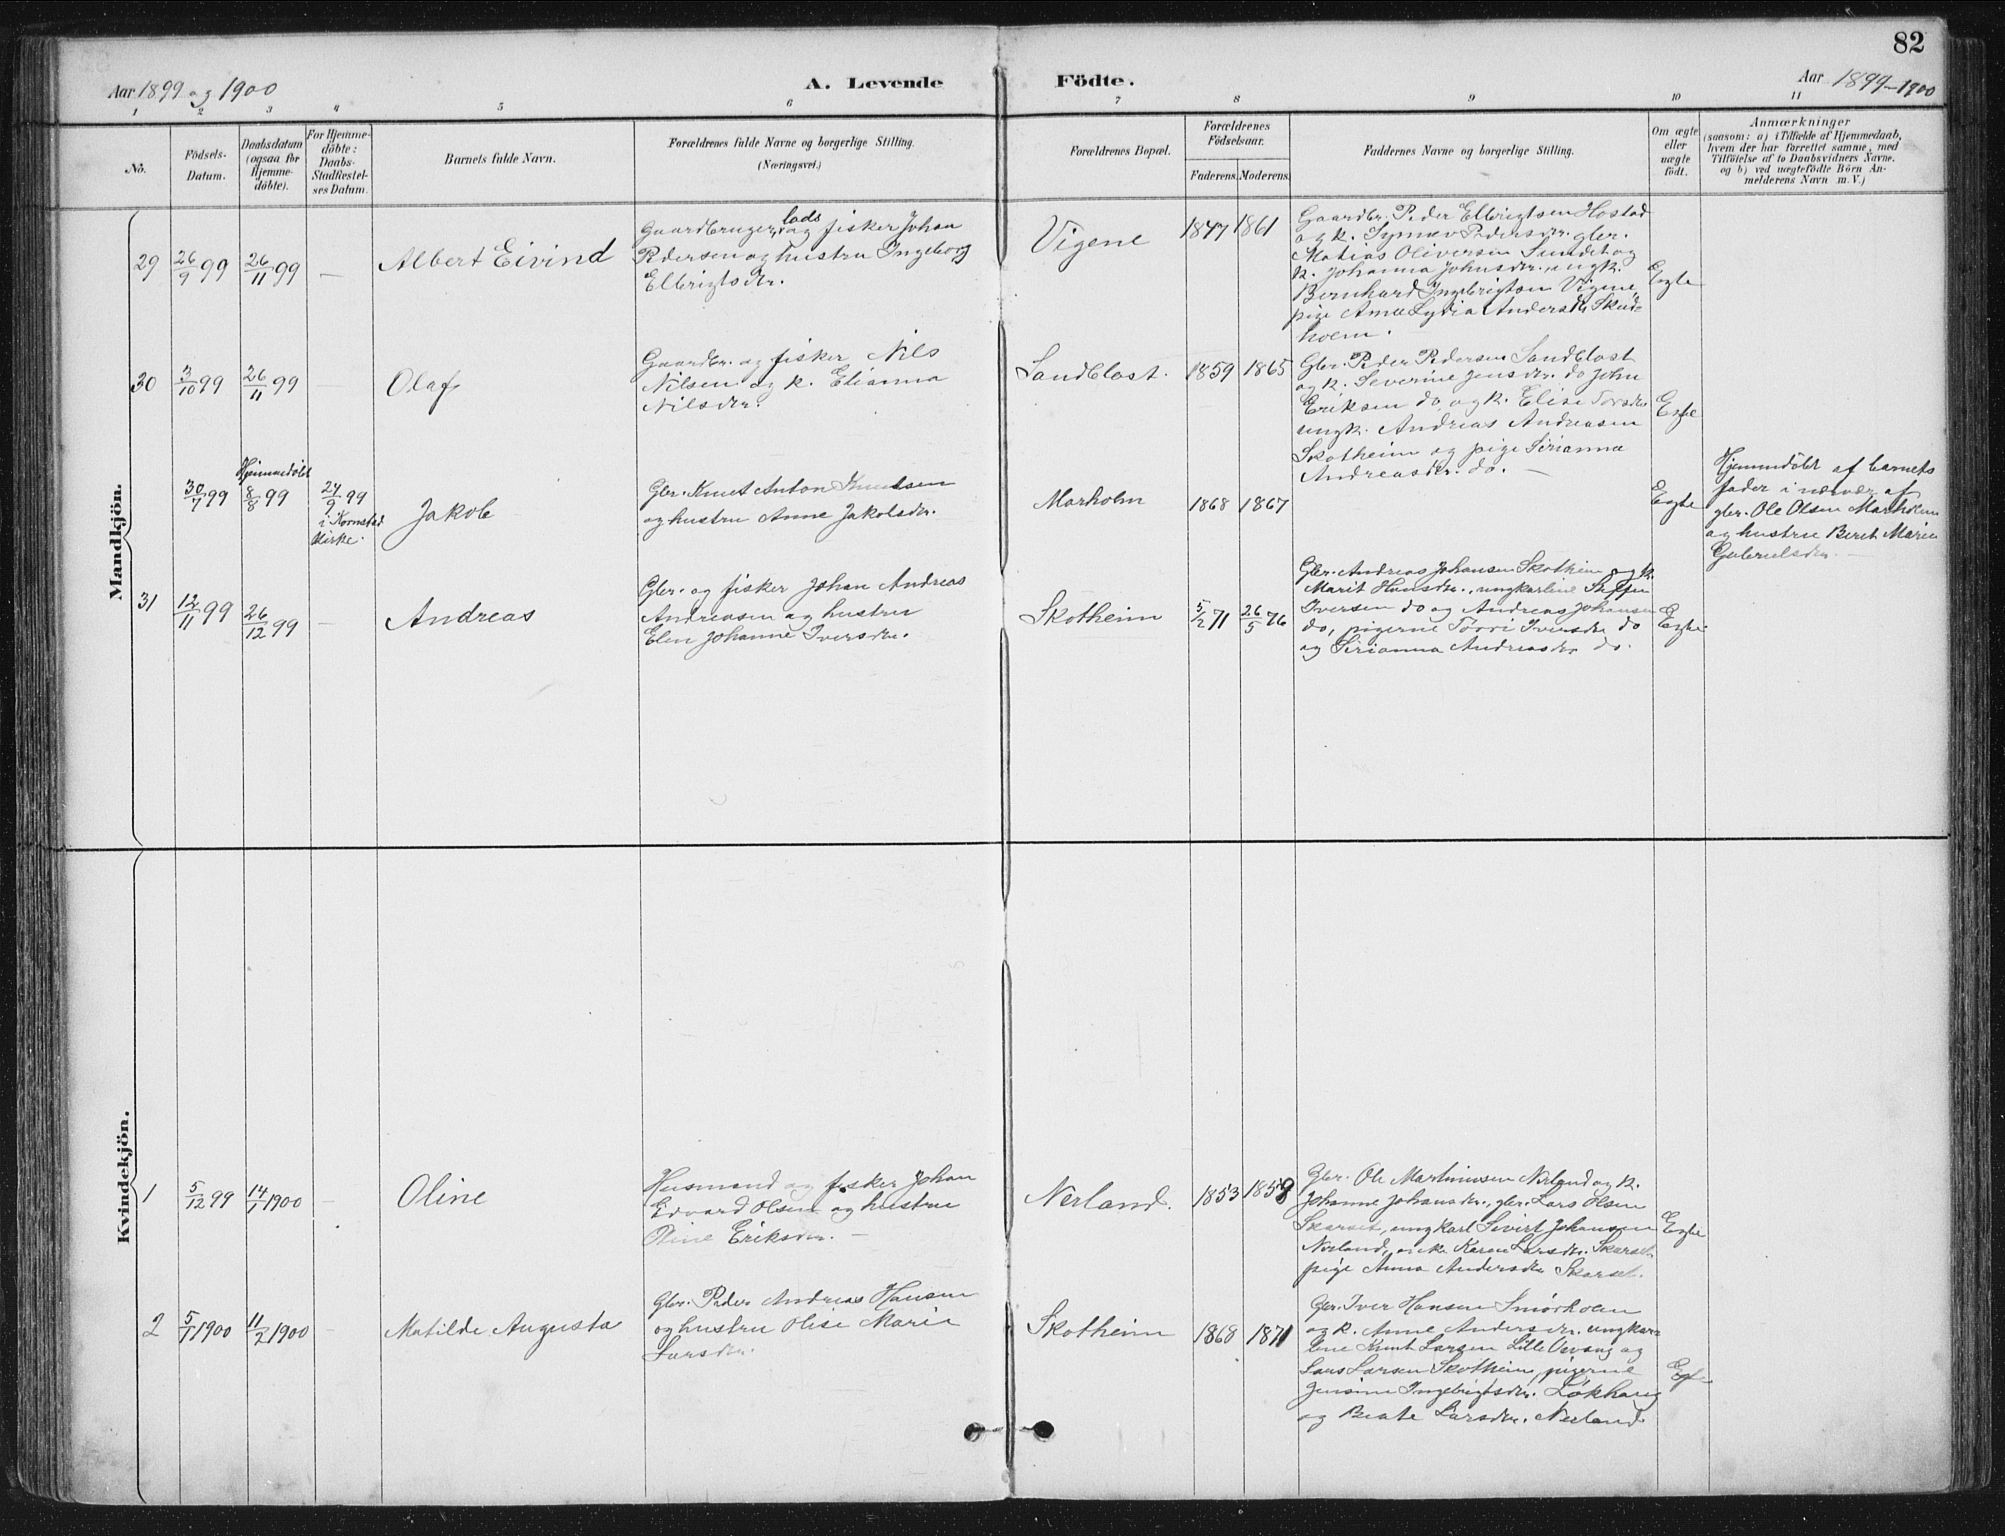 82
Aar 1899 og 1900
A. Levende Födte.
Aar 1899-1900
1 2 3 4 5 6 7 8 9 10 11
No.
Födsels-
Datum.
Daabsdatum
(ogsaa for
Hjemme-
döbte).
For Hjemme-
döbte:
Daabs-
Stadfæstel-
ses Datum.
Barnets fulde Navn.
Forældrenes fulde Navne og borgerlige Stilling.
(Næringsvei.)
Forældrenes Bopæl.
Forældrenes
Födselsaar.
Faderens. Moderens.
Faddernes Navne og borgerlige Stilling.
Om ægte
eller
uægte
födt.
Anmærkninger
(saasom: a) i Tilfælde af Hjemmedaab,
hvem der har forrettet samme, med
Tilföielse af to Daabsvidners Navne.
og b) ved uægtefödte Börn An-
melderens Navn m. V.)
Mandkjön.
29 26/9 99 26/11 99 — Albert Eivind
Gaardbruger, lods og fisker Johan
Pedersen og hustru Ingeborg
Ellerigtsdtr.
Vigene 1847 1861
Gaardbr. Peder Ellerigtsen Hostad
og k. Synnøv Pedersdtr. gbr.
Matias Oliversen Sundet og
k. Johanna Johnsdtr., ungk.
Bernhard Ingebrigtsen Vigene,
pige Anne Lydia Andersdtr Skud-
holm.
Egte
30 3/10 99 26/11 99 — Olaf
Gaardbr. og fisker Nils
Nilsen og k. Elianna
Nilsdtr.
Sandblost. 1859 1865
Gbr. Peder Pedersen Sandblost
og k. Severine Jensdtr. do John
Eriksen do, og k. Elise Torsdtr
ungk. Andreas Andreasen
Skotheim og pige Sirianna
Andreasdtr. do. —
Egte
30/7 99 Hjemmedöbt 8/8 99 24/9 99
i Kornstad
Kirke.
Jakob
Gbr. Knut Anton Knutsen
og hustru Anne Jakobsdtr.
Marholm 1868 1867
Egte
Hjemmedöbt af barnets
fader i nærvær af
gbr. Ole Olsen Marholm
og hustru Beret Marie
Gabrielsdtr. —
31 12/11 99 26/12 99 — Andreas
Gbr. og fisker Johan Andreas
Andreasen og hustru
Elen Johanne Iversdtr.
Skotheim 5/2 71 26/5 76
Gbr. Andreas Johansen Skotheim og k.
Marit Hansdtr., ungkarlene Steffen
Iversen do og Andreas Johansen
do, pigerne Iversdtr do
og Sirianna Andreasdtr do.
Egte
Kvindekjön.
1 5/12 99 14/1 1900 — Oline
Husmand og fisker Johan
Edvard Olsen og hustru
Oline Eriksdtr. —
Nerland. 1853 1859
Gbr. Ole Martinusen Nerland og k.
Johanne Johansdtr., gbr. Lars Olsen
Skarset, ungkarl Sivert Johansen
Nerland, enke Karen Larsdtr. Skarset
pige Anna Andersdtr Skarset.
Egte
2 5/1 1900 11/2 1900 — Matilde Augusta
Gbr. Peder Andreas Hansen
og hustru Olise Marie
Larsdtr.
Skotheim 1868 1871
Gbr. Iver Hansen Smørholm
og k. Anne Andersdtr. ungkar-
lene Knut Larsen Lille Vevang og
Lars Larsen Skotheim, pigerne
Jensine Ingebrigtsdtr. Løkhaug
og Beate Larsdtr. Nerland
Egte